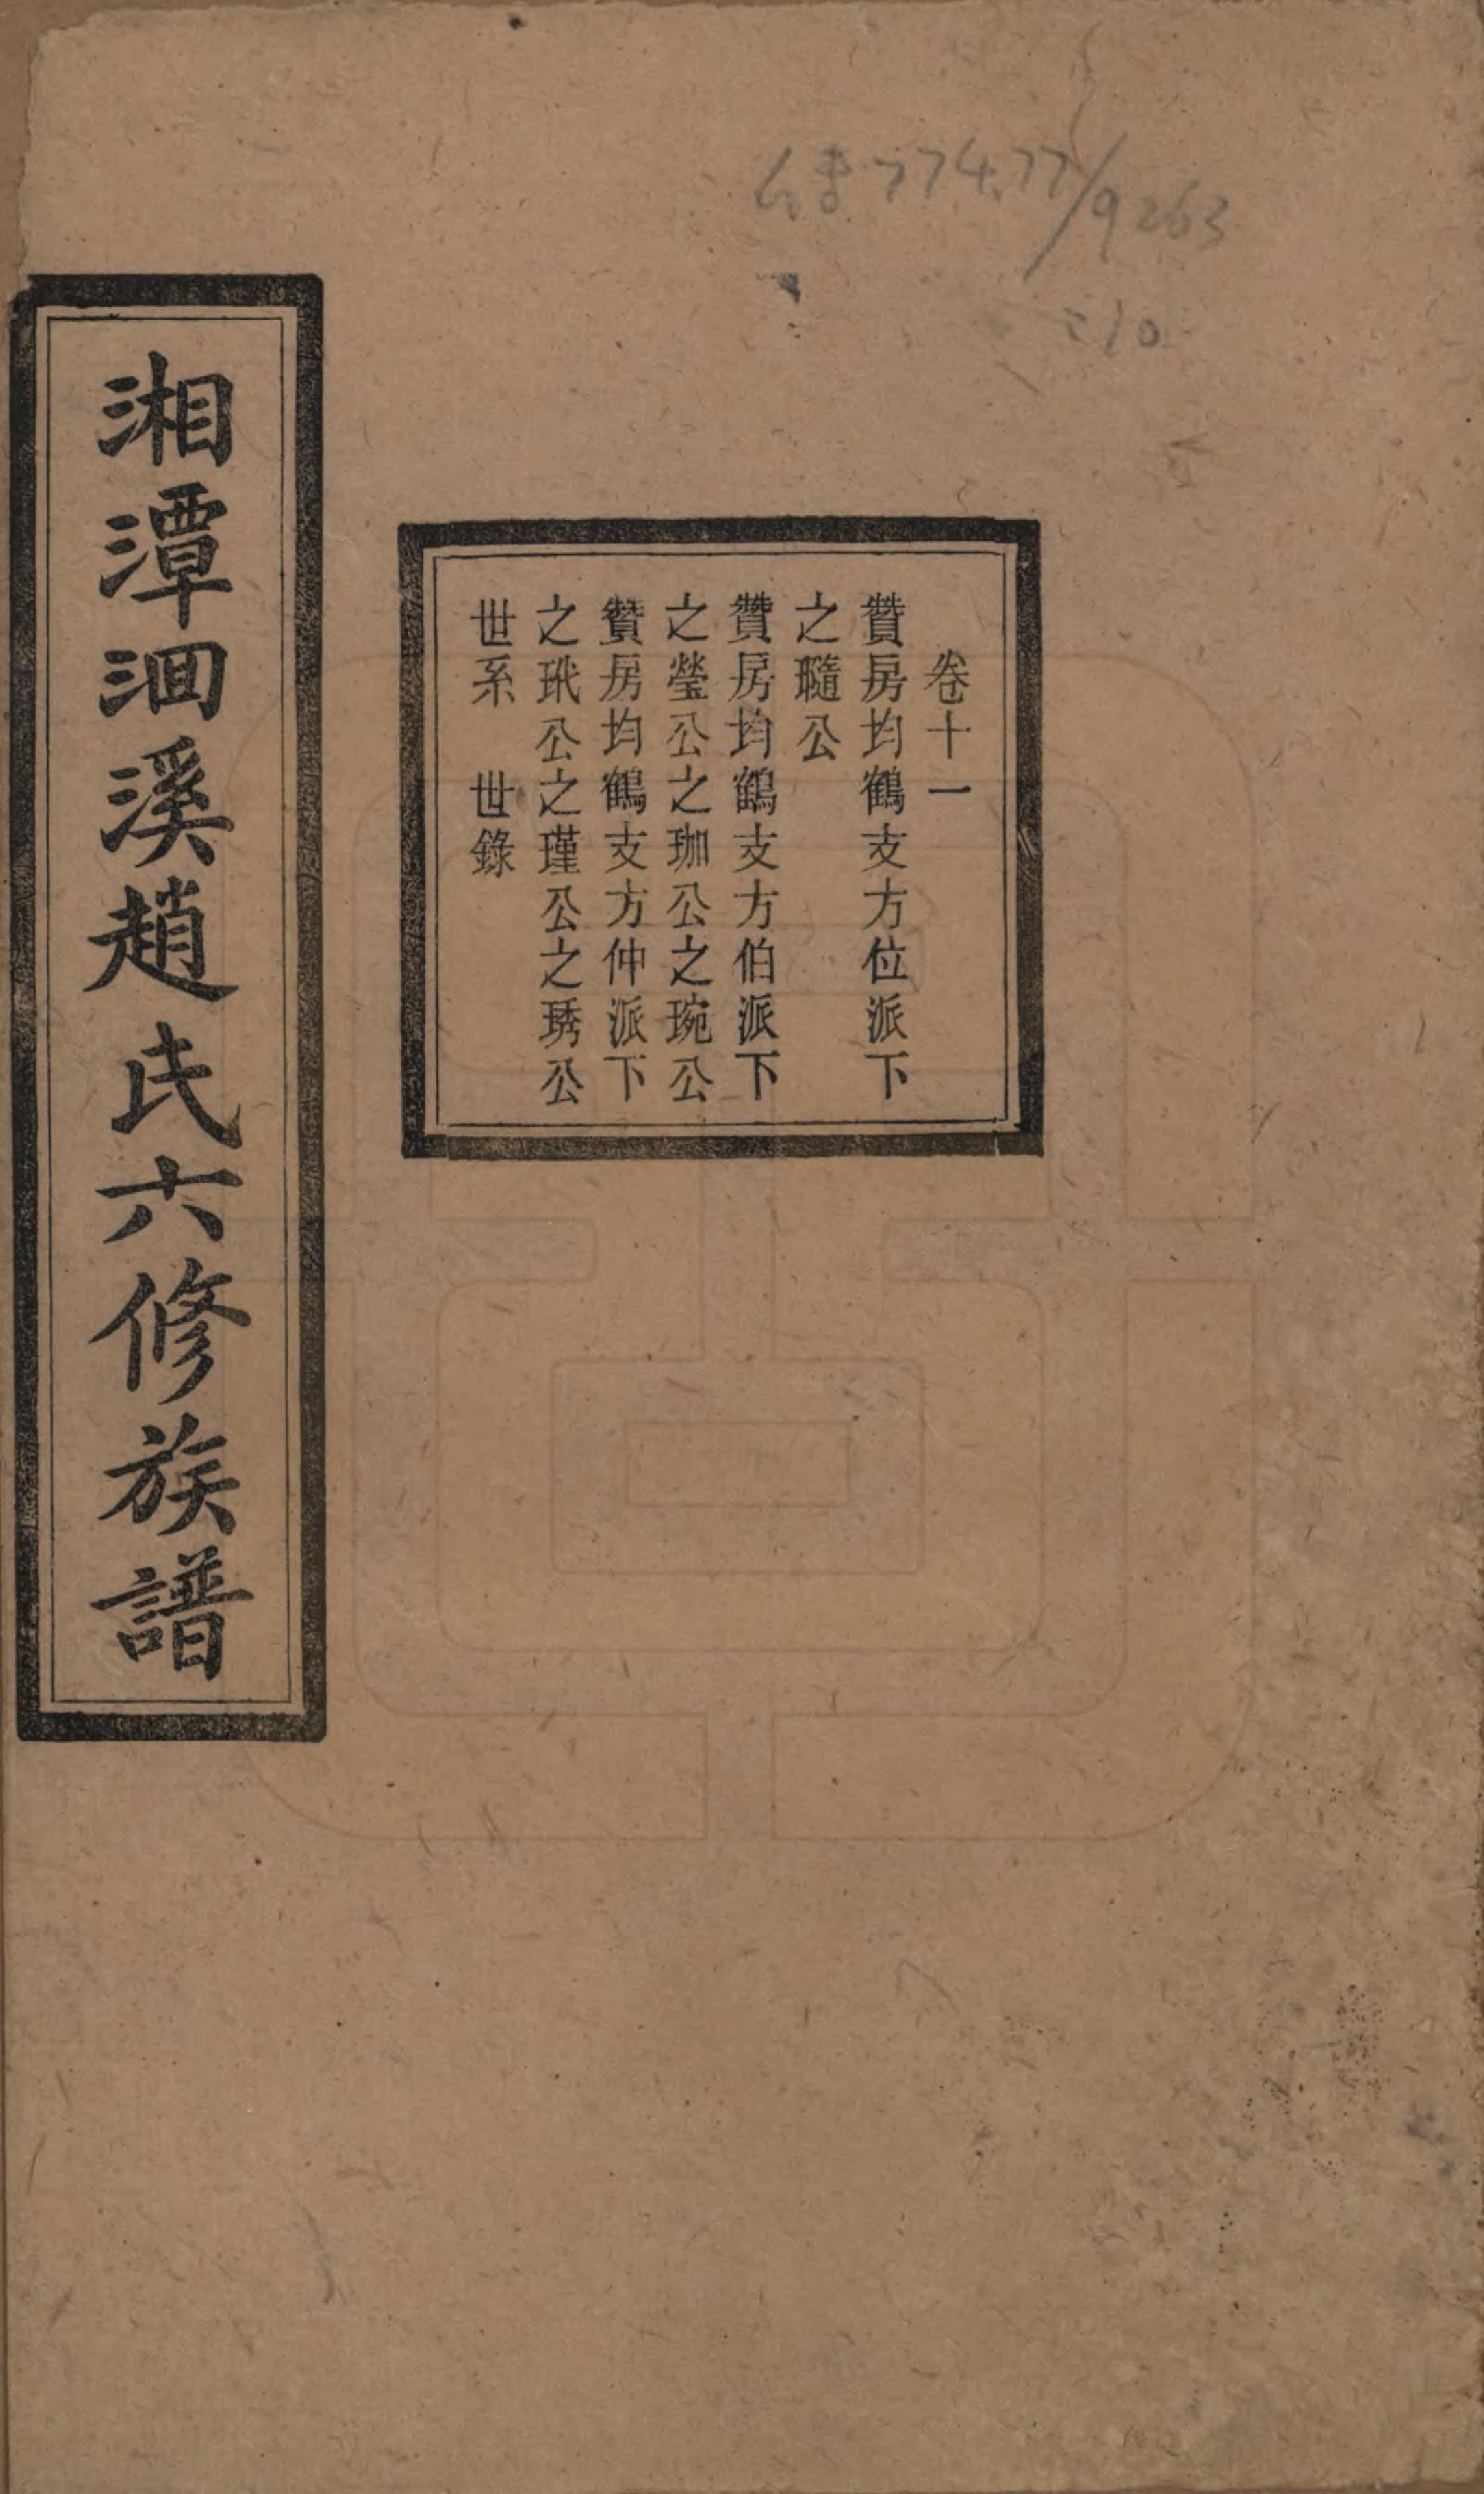 774.77/9263
:10
卷十一
贊房均鶴支方位派下
之聽公
贊房均鶴支方伯派下
之瑩公之珈公之琬公
贊房均鶴支方仲派下
之玳公之瑾公之琇公
世系　世錄
湘潭泗溪趙氏六修族譜